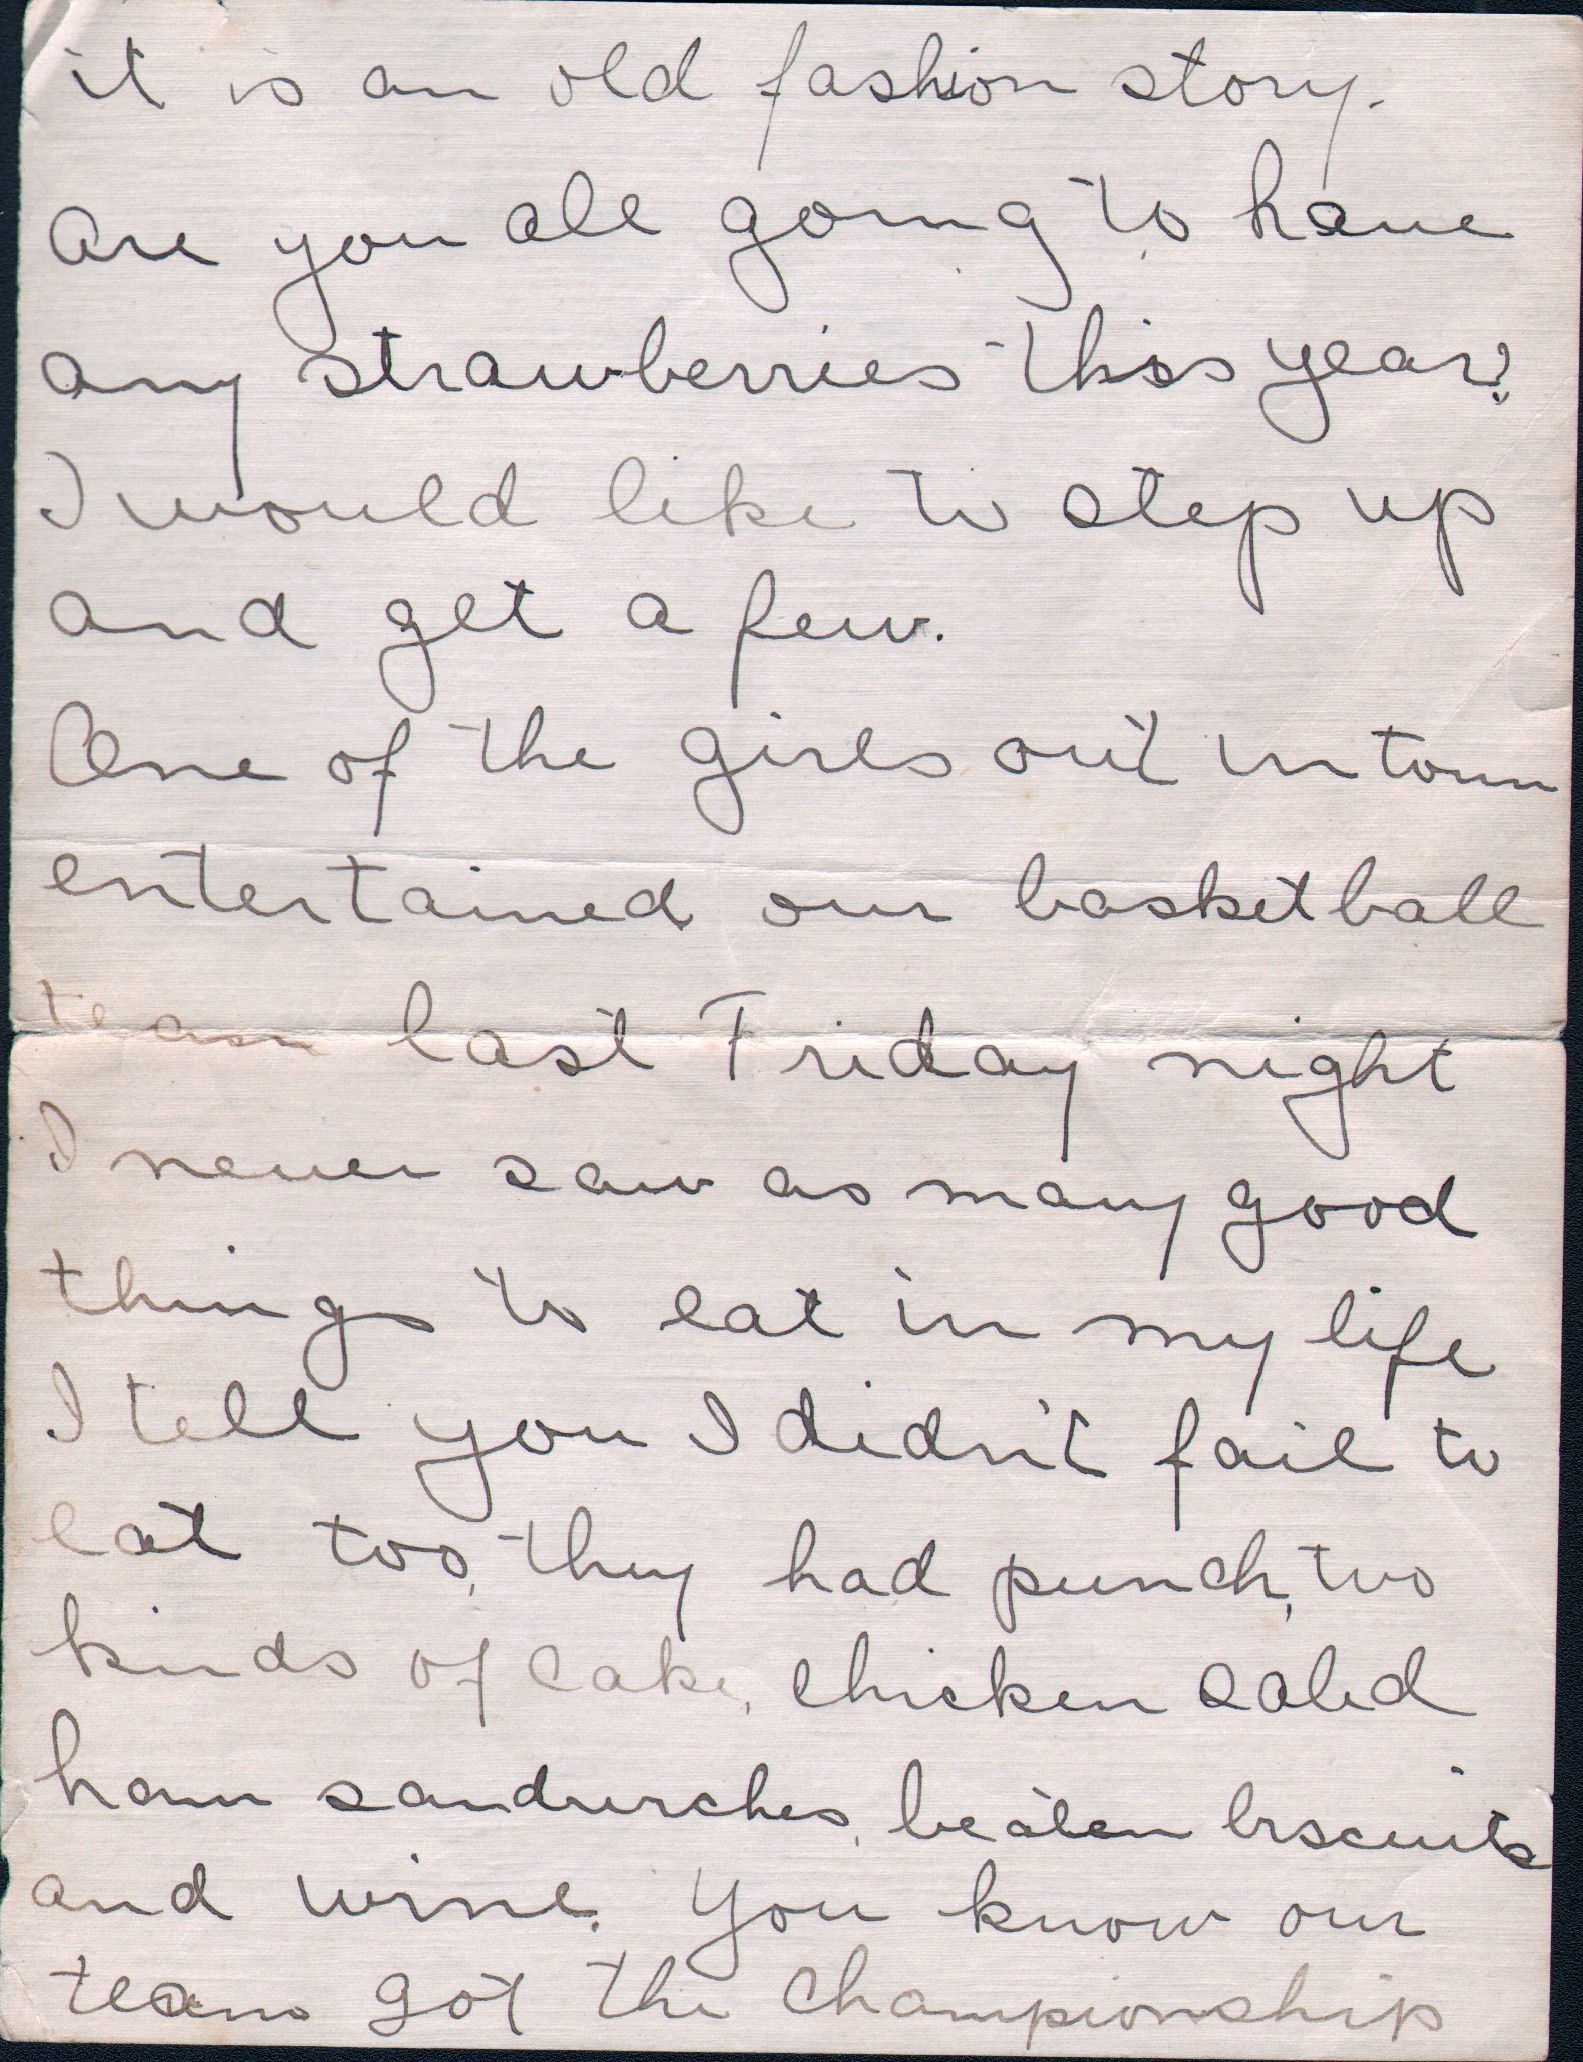 it is an old fashion story.
Are you all going to have
any strawberries this year?
I would like to step up
and get a few.
One of the girls out in town
entertained our basketball
team last Friday night
I never saw as many good
things to eat in my life
I tell you I didn't fail to
eat too, they had punch, two
kinds of cake, chicken salid
ham sandwiches, beaten biscuits
and wine. You know our
team got the championship